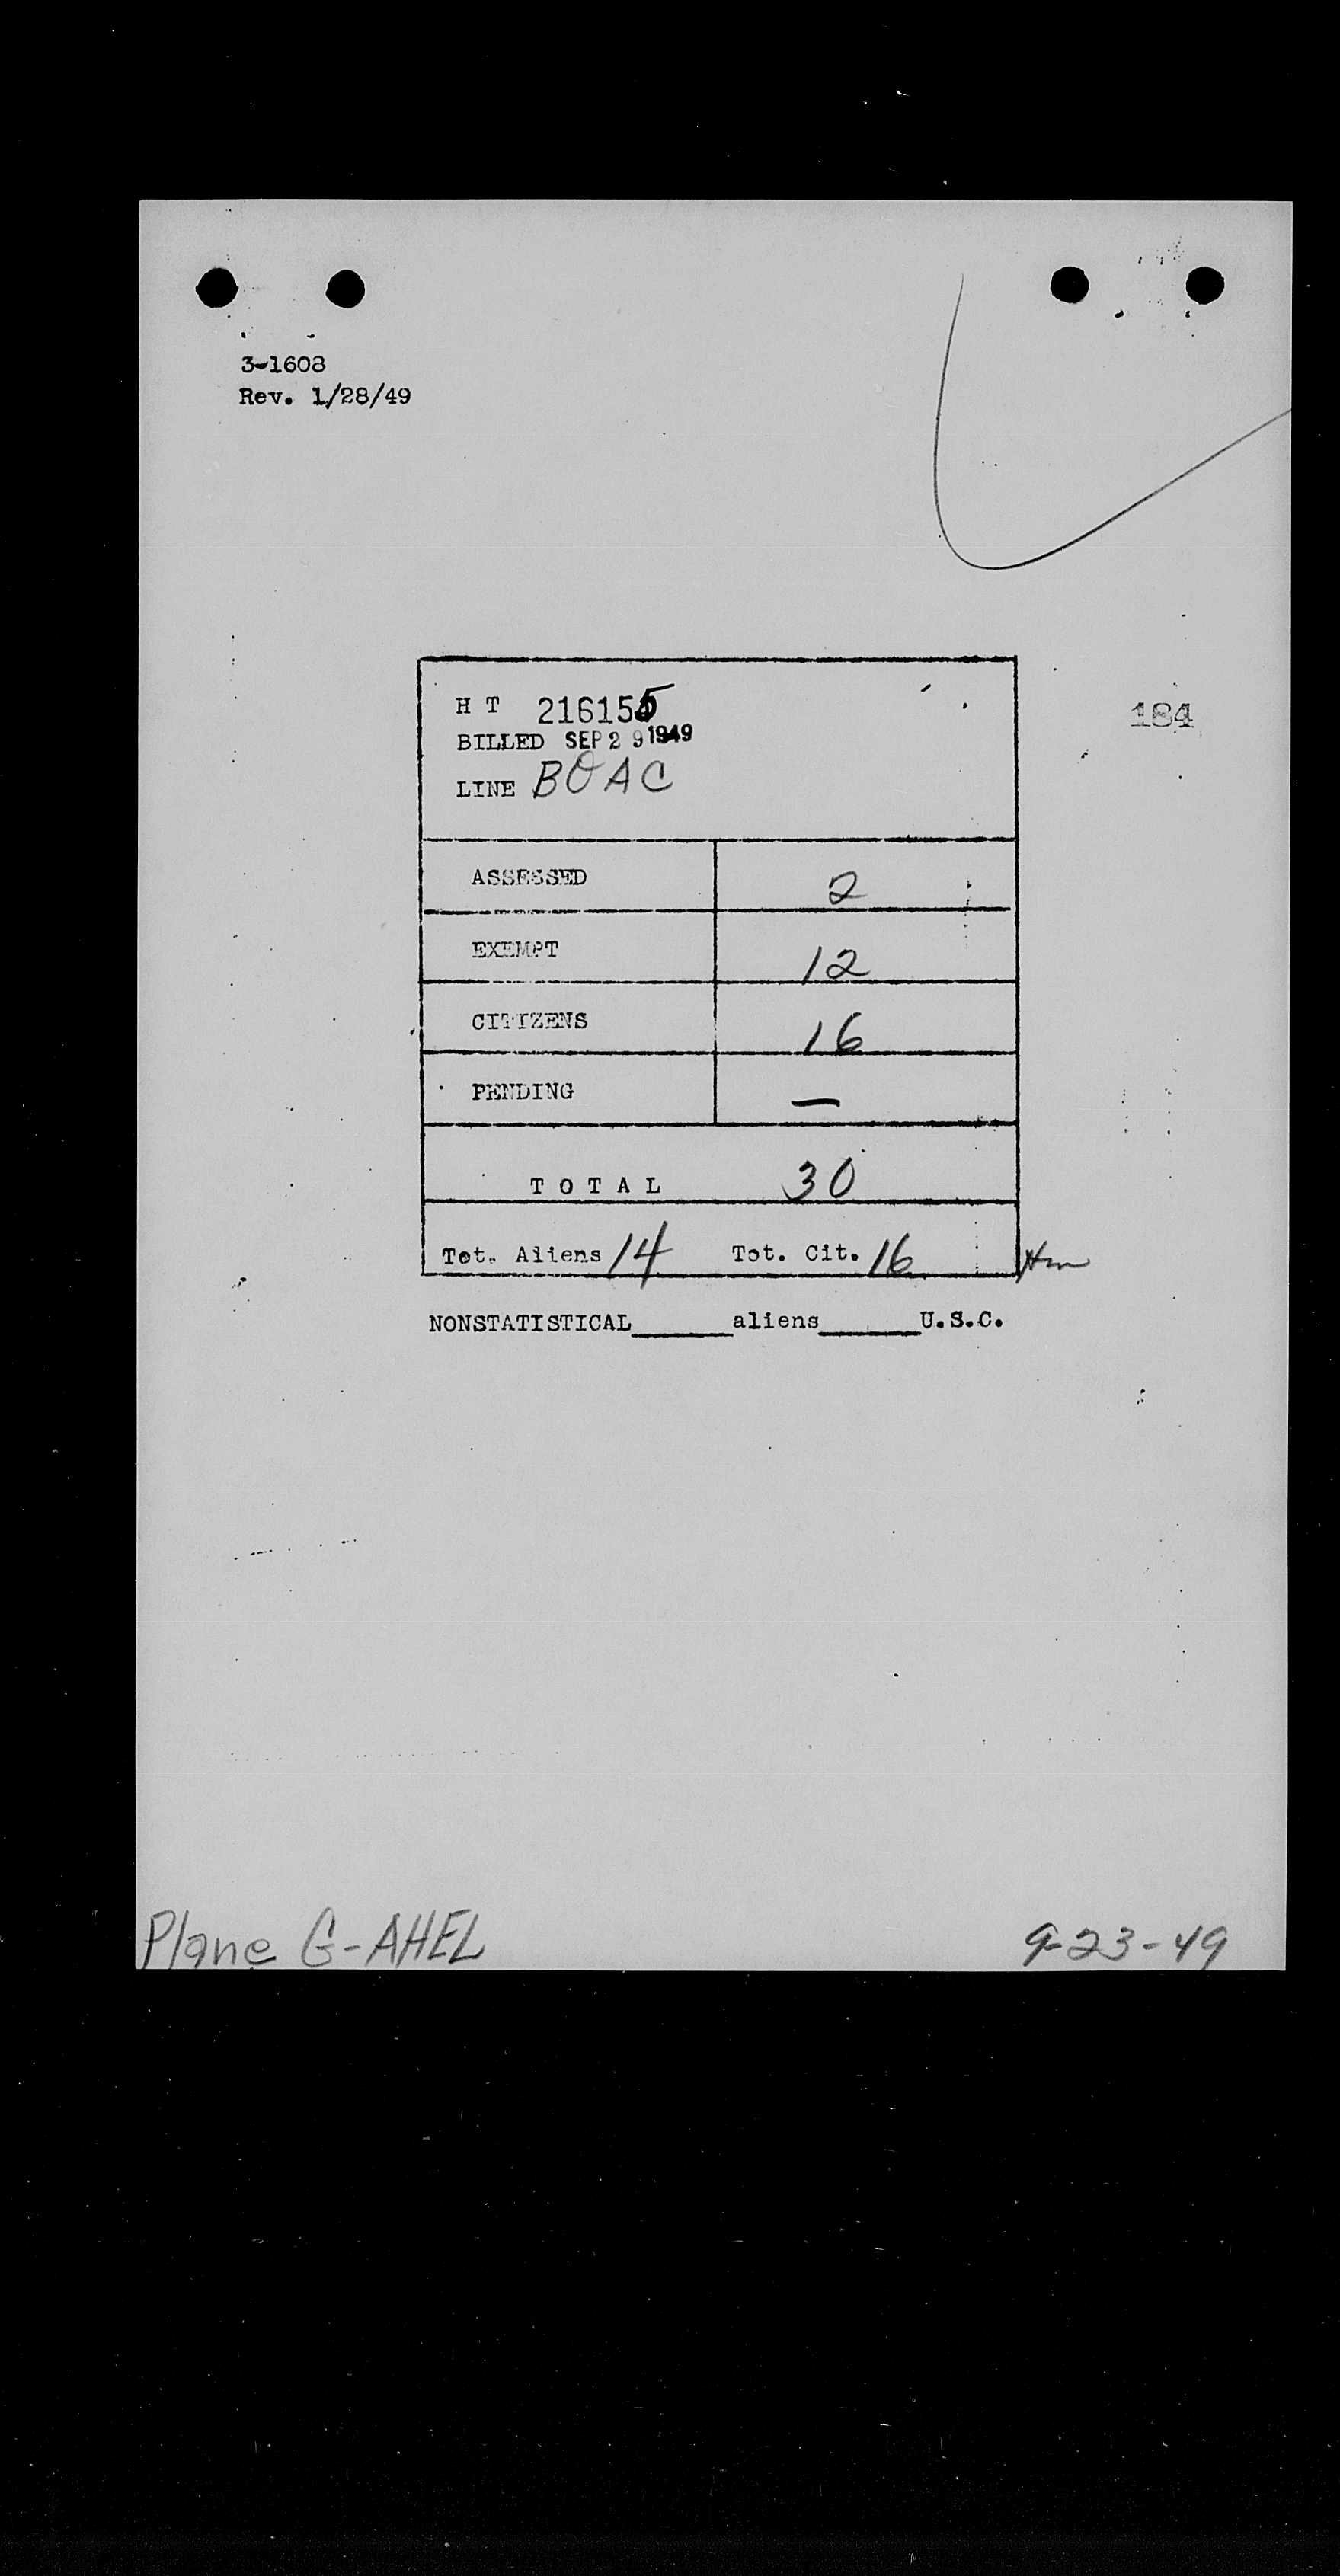 3-1608
Rev. 1/28/49
H T 216155
184
BILLED SEP 29 1949
LINE BOAC
ASSESSED 2
EXEMPT 12
CITIZENS 16
PENDING —
TOTAL 30
Tot. Aliens 14 Tot. Cit. 16
NONSTATISTICAL______aliens______U.S.C.
Plane G-AHEL 9-23-49